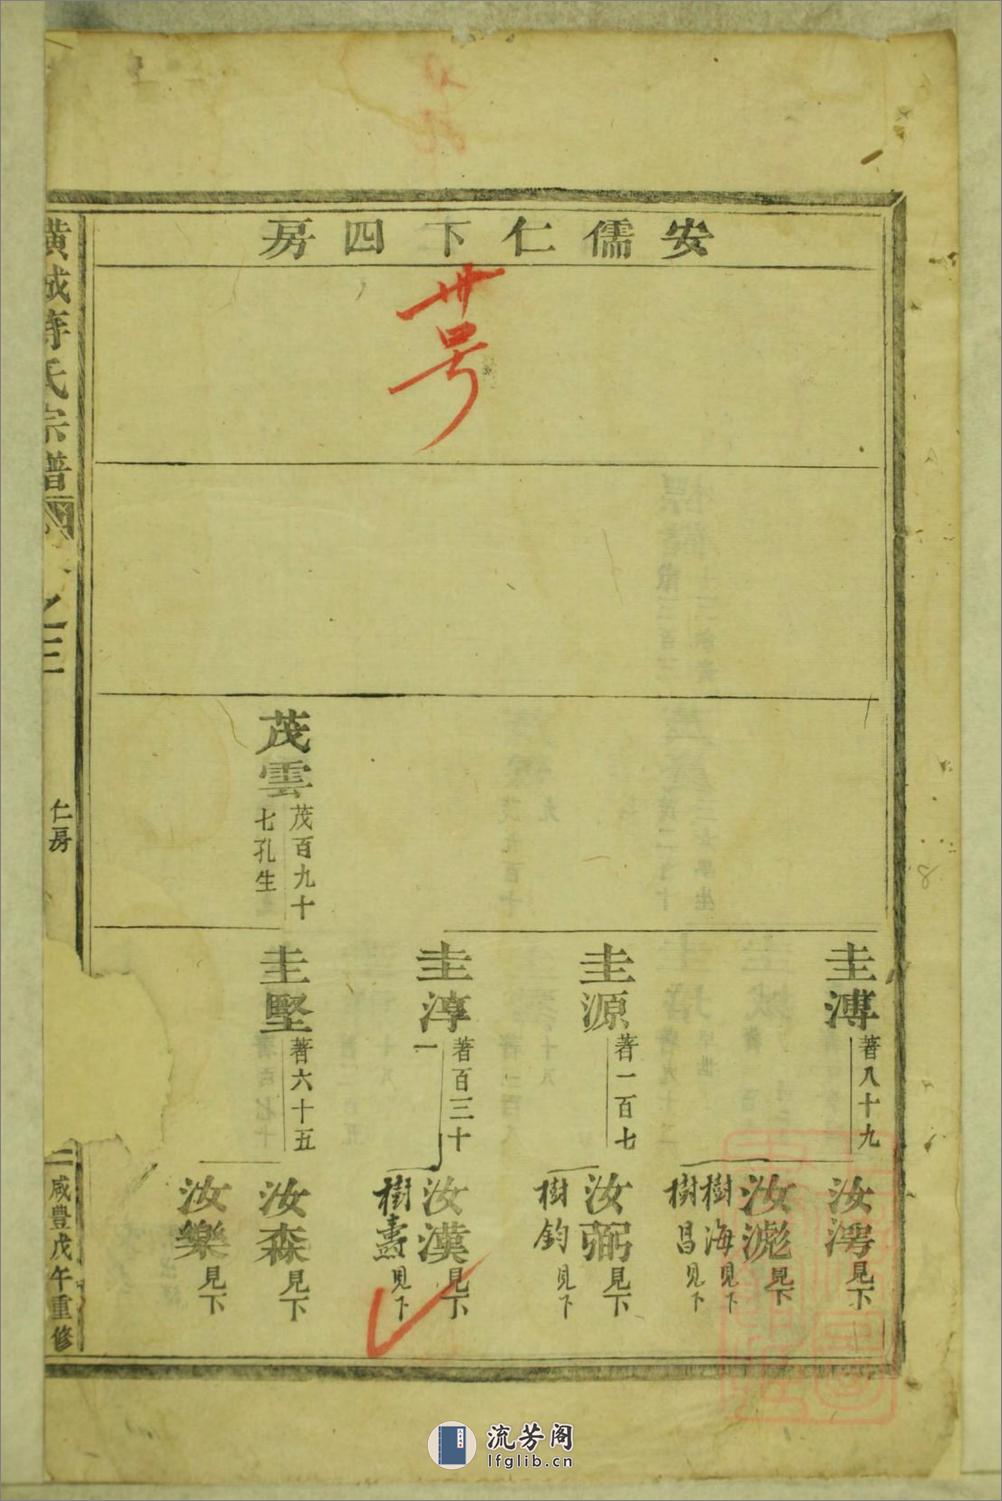 安儒仁下四房
卅号
圭溥 著八十九
圭源 著一百七
圭淳 著百三十一
茂雲 茂百九十七孔生
圭堅 著六十五
汝澚 見下
汝滮 見下
樹海 見下
樹昌 見下
汝弼 見下
樹鈞 見下
汝漢 見下
樹壽 見下
汝森 見下
汝樂 見下
橫城蔣氏宗譜
之三
仁房
咸豐戊午重修
流芳阁
lfglib.cn